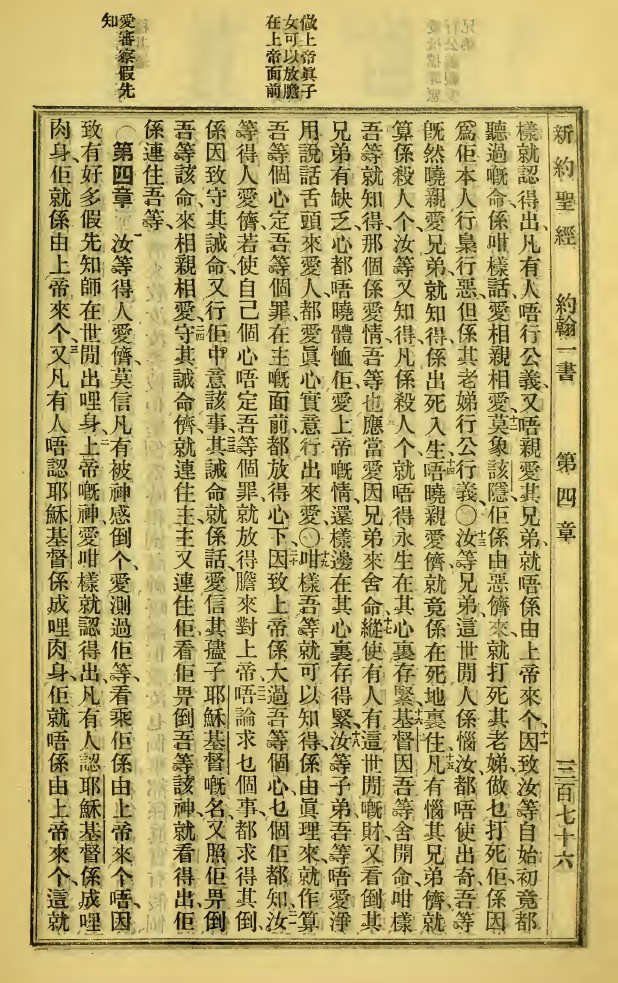 做上帝眞子
女可以放膽
在上帝面前
愛審察假先
知
新約聖經 約翰一書 第四章 三百七十六
樣就認得出、凡有人唔行公義、又唔親愛其兄弟、就唔係由上帝來个、十一因致汝等自始初竟都
聽過嘅命係咁樣話、愛相親相愛、十二莫象該隱、佢係由惡儕來、就打死其老娣、做乜打死佢、係因
爲佢本人行梟行惡、但係其老娣行公行義〇十三汝等兄弟、這世閒人係惱汝、都唔使出奇、十四吾等
旣然曉親愛兄弟、就知得係出死入生、唔曉親愛儕、就竟係在死地裏住、十五凡有惱其兄弟儕、就
算係殺人个、汝等又知得凡係殺人个、就唔得永生在其心裏存緊、十六基督因吾等舍開命、咁樣
吾等就知得那個係愛情、吾等也應當愛因兄弟來舍命、十七縱使有人有這世閒嘅財、又看倒其
兄弟有缺乏、心都唔曉體恤佢、愛上帝嘅情還樣邊在其心裏存得緊、十八汝等子弟、吾等唔愛淨
用說話舌頭來愛人、都愛眞心實意行出來愛〇十九咁樣吾等就可以知得係由眞理來、就作算
吾等個心定吾等個罪、在主嘅面前、都放得心下、二十因致上帝係大過吾等個心、乜個佢都知、二一汝
等得人愛儕、若使自己個心唔定吾等個罪、就放得膽來對上帝、二二唔論求乜個事、都求得其倒、
係因致守其誡命、又行佢中意該事、二三其誡命就係話、愛信其孻子耶穌基督嘅名、又照佢畀倒
吾等該命來相親相愛、二四守其誡命儕、就連住主、主又連住佢、看佢畀倒吾等該神、就看得出佢
係連住吾等、
〇第四章 汝等得人愛儕、莫信凡有被神感倒个、愛測過佢等、看乘佢係由上帝來个唔、因
致有好多假先知師在世閒出哩身、二上帝嘅神愛咁樣就認得出、凡有人認耶穌基督係成哩
肉身、佢就係由上帝來个、三又凡有人唔認耶穌基督係成哩肉身、佢就唔係由上帝來个、這就